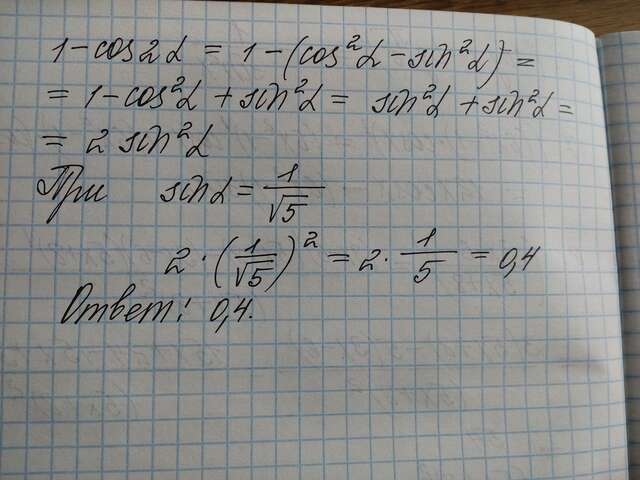 1-cos2α = 1-(cos²α-sin²α)=
= 1-cos²α + sin²α = sin²α + sin²α =
= 2 sin²α
При sinα = 1/√5
2·(1/√5)² = 2·1/5 = 0,4
Ответ: 0,4.